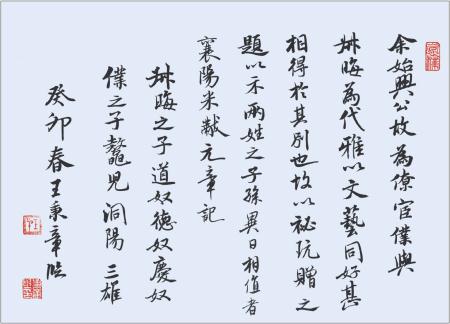 余始興公故為僚宦僕與
叔晦為代雅以文藝同好甚
相得於其別也故以祕玩贈之
題以示兩姓之子孫異日相值者
襄陽米黻元章記
叔晦之子道奴德奴慶奴
僕之子鼇兒洞陽三雄
癸卯春王秉章臨